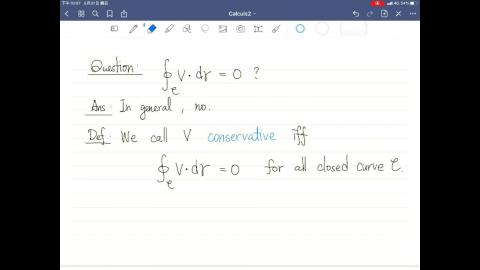 Calculs2
4G 54%
Question: ∮_C V·dr = 0 ?
Ans: In general, no.
Def: We call V conservative iff
∮_C V·dr = 0 for all closed curve C.